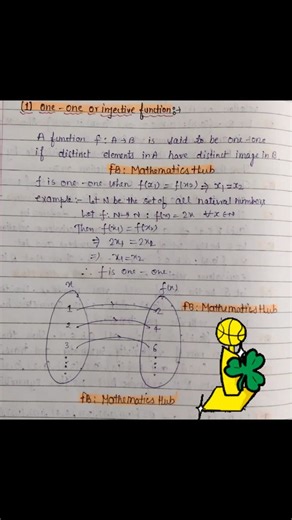 (1) one-one or injective function:→
A function f: A→B is said to be one-one
if distinct elements in A have distinct image in B
fB: Mathematics Hub
f is one-one when f(x₁) = f(x₂) ⇒ x₁=x₂
example:- Let N be the set of all natural numbers
Let f: N→N : f(x) = 2x ∀ x∈N
Then f(x₁) = f(x₂)
⇒ 2x₁ = 2x₂
⇒ x₁=x₂
∴ f is one-one.
x f(x)
1 2
fB: Mathematics Hub
2 4
3 6
fB: Mathematics Hub